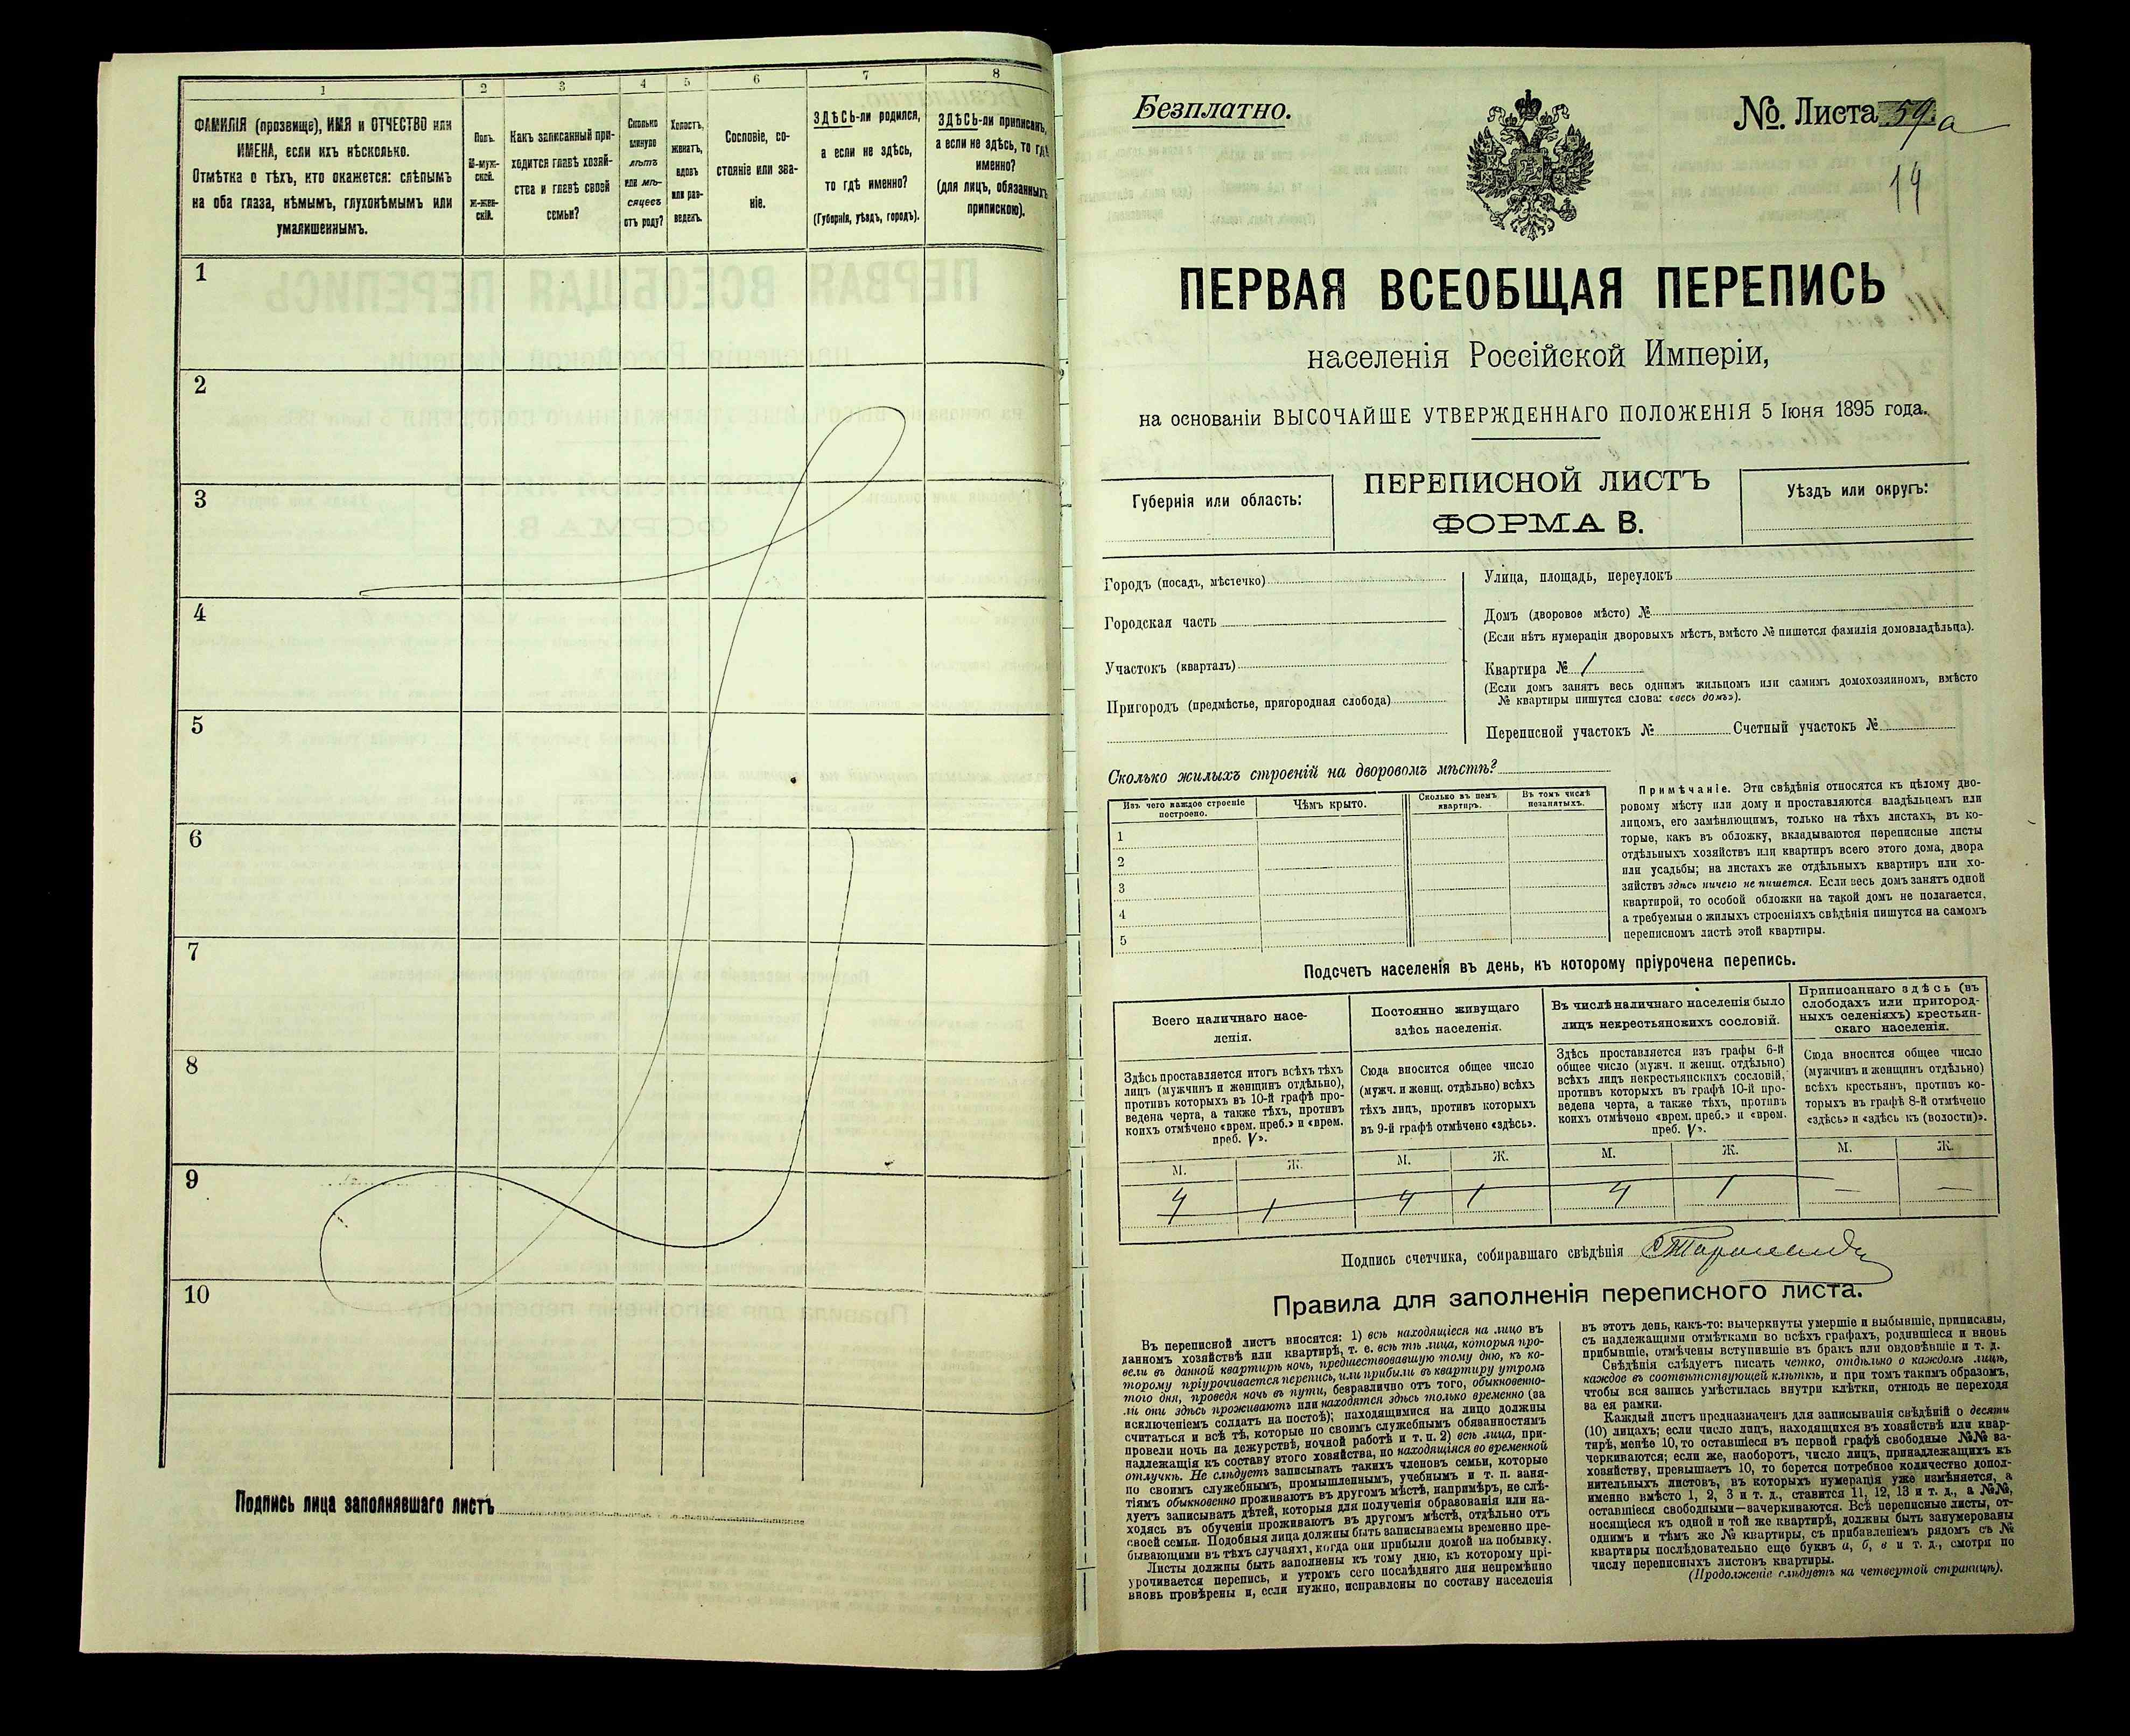 1
2
3
4
5
6
7
8
ФАМИЛІЯ (прозвище), ИМЯ и ОТЧЕСТВО или
ИМЕНА, если ихъ нѣсколько.
Отмѣтка о тѣхъ, кто окажется: слѣпымъ
на оба глаза, нѣмымъ, глухонѣмымъ или
умалишеннымъ.
Полъ.
М-муж-
ской.
Ж-жен-
скій.
Какъ записанный при-
ходится главѣ хозяй-
ства и главѣ своей
семьи?
Сколько
минуло
лѣтъ
или мѣ-
сяцевъ
отъ роду?
Холостъ,
женатъ,
вдовъ
или раз-
веденъ.
Сословіе, со-
стояніе или зва-
ніе.
ЗДѢСЬ-ли родился,
а если не здѣсь,
то гдѣ именно?
(Губернія, уѣздъ, городъ).
ЗДѢСЬ-ли приписанъ,
а если не здѣсь, то гдѣ
именно?
(для лицъ, обязанныхъ
припискою).
1
2
3
4
5
6
7
8
9
10
Подпись лица заполнявшаго листъ
Безплатно.
№ Листа 59 а
14
ПЕРВАЯ ВСЕОБЩАЯ ПЕРЕПИСЬ
населенія Россійской Имперіи,
на основаніи ВЫСОЧАЙШЕ УТВЕРЖДЕННАГО ПОЛОЖЕНІЯ 5 Іюня 1895 года.
Губернія или область:
ПЕРЕПИСНОЙ ЛИСТЪ
ФОРМА В.
Уѣздъ или округъ:
Городъ (посадъ, мѣстечко)
Городская часть
Участокъ (кварталъ)
Пригородъ (предмѣстье, пригородная слобода)
Улица, площадь, переулокъ
Домъ (дворовое мѣсто) №
(Если нѣтъ нумераціи дворовыхъ мѣстъ, вмѣсто № пишется фамилія домовладѣльца).
Квартира № 1
(Если домъ занятъ весь однимъ жильцомъ или самимъ домохозяиномъ, вмѣсто
№ квартиры пишутся слова: «весь домъ»).
Переписной участокъ № Счетный участокъ №
Сколько жилыхъ строеній на дворовомъ мѣстѣ?
Изъ чего каждое строеніе
построено.
Чѣмъ крыто.
Сколько въ немъ
квартиръ.
Въ томъ числѣ
незанятыхъ.
1
2
3
4
5
Примѣчаніе. Эти свѣдѣнія относятся къ цѣлому дво-
ровому мѣсту или дому и проставляются владѣльцемъ или
лицомъ, его замѣняющимъ, только на тѣхъ листахъ, въ ко-
торые, какъ въ обложку, вкладываются переписные листы
отдѣльныхъ хозяйствъ или квартиръ всего этого дома, двора
или усадьбы; на листахъ же отдѣльныхъ квартиръ или хо-
зяйствъ здѣсь ничего не пишется. Если весь домъ занятъ одной
квартирой, то особой обложки на такой домъ не полагается,
а требуемыя о жилыхъ строеніяхъ свѣдѣнія пишутся на самомъ
переписномъ листѣ этой квартиры.
Подсчетъ населенія въ день, къ которому пріурочена перепись.
Всего наличнаго насе-
ленія.
Постоянно живущаго
здѣсь населенія.
Въ числѣ наличнаго населенія было
лицъ некрестьянскихъ сословій.
Приписаннаго здѣсь (въ
слободахъ или пригород-
ныхъ селеніяхъ) крестьян-
скаго населенія.
Здѣсь проставляется итогъ всѣхъ тѣхъ
лицъ (мужчинъ и женщинъ отдѣльно),
противъ которыхъ въ 10-й графѣ про-
ведена черта, а также тѣхъ, противъ
коихъ отмѣчено «врем. преб.» и «врем.
преб. V».
Сюда вносится общее число
(мужч. и женщ. отдѣльно) всѣхъ
тѣхъ лицъ, противъ которыхъ
въ 9-й графѣ отмѣчено «здѣсь».
Здѣсь проставляется изъ графы 6-й
общее число (мужч. и женщ. отдѣльно)
всѣхъ лицъ некрестьянскихъ сословій,
противъ которыхъ въ графѣ 10-й про-
ведена черта, а также тѣхъ, противъ
коихъ отмѣчено «врем. преб.» и «врем.
преб. V».
Сюда вносится общее число
(мужчинъ и женщинъ отдѣльно)
всѣхъ крестьянъ, противъ ко-
торыхъ въ графѣ 8-й отмѣчено
«здѣсь» и «здѣсь къ (волости)».
М. Ж. М. Ж. М. Ж. М. Ж.
4 1 4 1 4 1 — —
Подпись счетчика, собиравшаго свѣдѣнія
Правила для заполненія переписного листа.
Въ переписной листъ вносятся: 1) всѣ находящіеся на лицо въ
данномъ хозяйствѣ или квартирѣ, т. е. всѣ тѣ лица, которыя про-
вели въ данной квартирѣ ночь, предшествовавшую тому дню, къ ко-
торому пріурочивается перепись, или прибыли въ квартиру утромъ
того дня, проведя ночь въ пути, безразлично отъ того, обыкновенно-
ли они здѣсь проживаютъ или находятся здѣсь только временно (за
исключеніемъ солдатъ на постоѣ); находящимися на лицо должны
считаться и всѣ тѣ, которые по своимъ служебнымъ обязанностямъ
провели ночь на дежурствѣ, ночной работѣ и т. п. 2) всѣ лица, при-
надлежащія къ составу этого хозяйства, но находящіяся во временной
отлучкѣ. Не слѣдуетъ записывать такихъ членовъ семьи, которые
по своимъ служебнымъ, промышленнымъ, учебнымъ и т. п. заня-
тіямъ обыкновенно проживаютъ въ другомъ мѣстѣ, напримѣръ, не слѣ-
дуетъ записывать дѣтей, которыя для полученія образованія или на-
ходясь въ обученіи проживаютъ въ другомъ мѣстѣ, отдѣльно отъ
своей семьи. Подобныя лица должны быть записываемы временно пре-
бывающими въ тѣхъ случаяхъ, когда они прибыли домой на побывку.
Листы должны быть заполнены къ тому дню, къ которому прі-
урочивается перепись, и утромъ сего послѣдняго дня непремѣнно
вновь провѣрены и, если нужно, исправлены по составу населенія
въ этотъ день, какъ-то: вычеркнуты умершіе и выбывшіе, приписаны,
съ надлежащими отмѣтками во всѣхъ графахъ, родившіеся и вновь
прибывшіе, отмѣчены вступившіе въ бракъ или овдовѣвшіе и т. д.
Свѣдѣнія слѣдуетъ писать четко, отдѣльно о каждомъ лицѣ,
каждое въ соотвѣтствующей клѣткѣ, и при томъ такимъ образомъ,
чтобы вся запись умѣстилась внутри клѣтки, отнюдь не переходя
за ея рамки.
Каждый листъ предназначенъ для записыванія свѣдѣній о десяти
(10) лицахъ; если число лицъ, находящихся въ хозяйствѣ или квар-
тирѣ, менѣе 10, то оставшіеся въ первой графѣ свободные №№ за-
черкиваются; если же, наоборотъ, число лицъ, принадлежащихъ къ
хозяйству, превышаетъ 10, то берется потребное количество допол-
нительныхъ листовъ, въ которыхъ нумерація уже измѣняется, а
именно вмѣсто 1, 2, 3 и т. д., ставится 11, 12, 13 и т. д., а №№,
оставшіеся свободными—зачеркиваются. Всѣ переписные листы, от-
носящіеся къ одной и той же квартирѣ, должны быть занумерованы
однимъ и тѣмъ же № квартиры, съ прибавленіемъ рядомъ съ №
квартиры послѣдовательно еще буквъ а, б, в и т. д., смотря по
числу переписныхъ листовъ квартиры.
(Продолженіе слѣдуетъ на четвертой страницѣ).